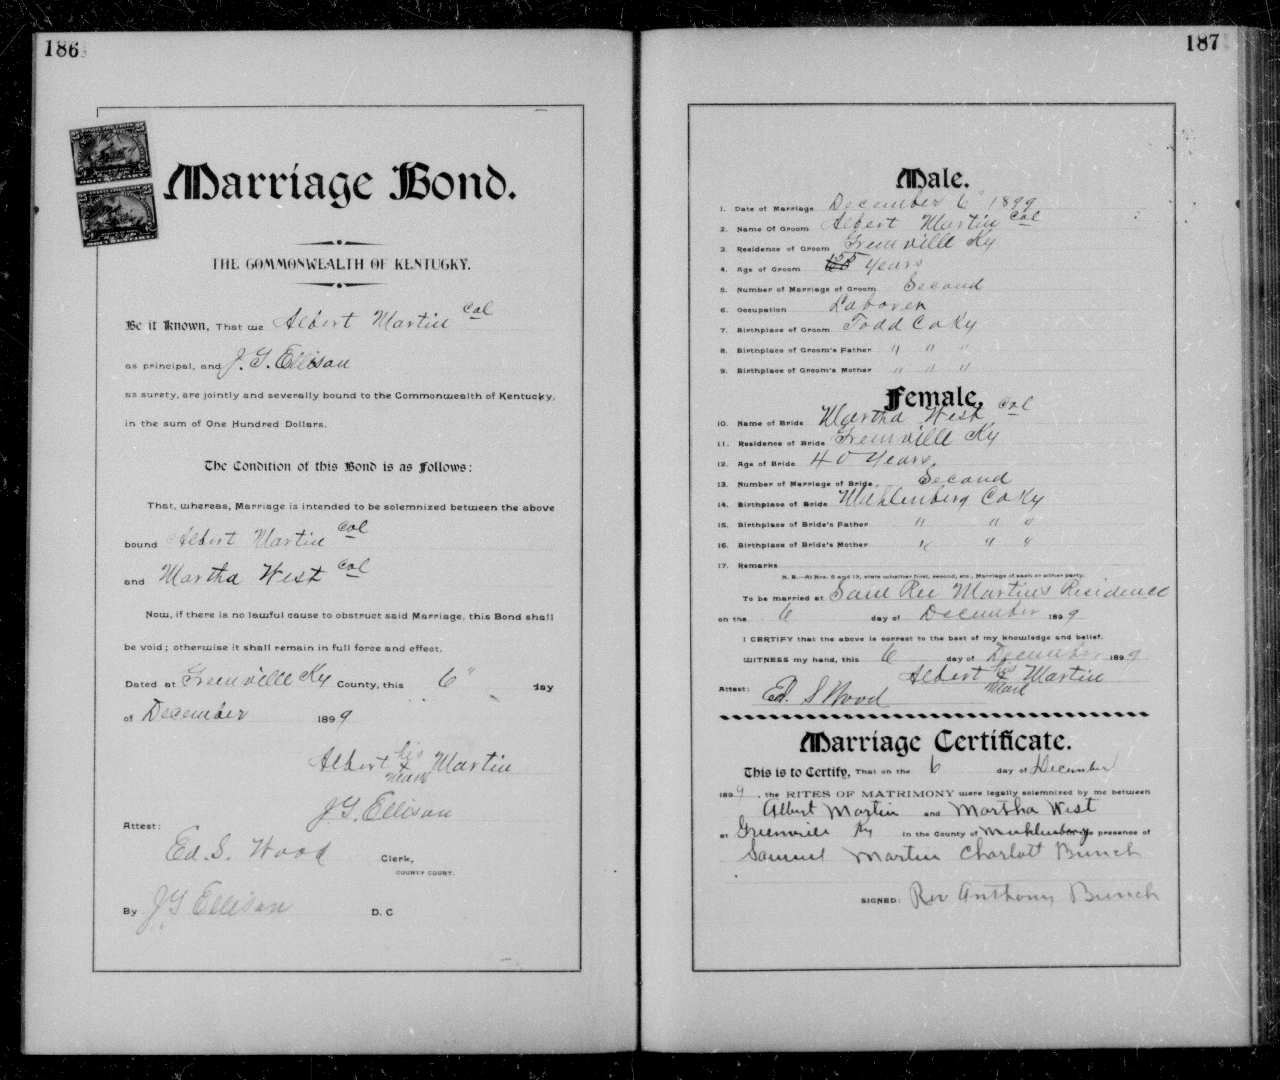 186
Marriage Bond.
THE COMMONWEALTH OF KENTUCKY.
Be it Known, That we Albert Martin Col
as principal, and J. G. Ellison
as surety, are jointly and severally bound to the Commonwealth of Kentucky,
in the sum of One Hundred Dollars.
The Condition of this Bond is as Follows:
That, whereas, Marriage is intended to be solemnized between the above
bound Albert Martin Col
and Martha West Col
Now, if there is no lawful cause to obstruct said Marriage, this Bond shall
be void; otherwise it shall remain in full force and effect.
Dated at Greenville Ky County, this 6" day
of December 1899
Albert his x mark Martin
J. G. Ellison
Attest:
Ed. S. Wood Clerk,
COUNTY COURT.
By J G Ellison D. C
187
Male.
1. Date of Marriage December 6" 1899
2. Name Of Groom Albert Martin Col
3. Residence of Groom Greenville Ky
4. Age of Groom 55 Years
5. Number of Marriage of Groom Second
6. Occupation Laborer
7. Birthplace of Groom Todd Co Ky
8. Birthplace of Groom's Father " " "
9. Birthplace of Groom's Mother " " "
Female.
10. Name of Bride Martha West Col
11. Residence of Bride Greenville Ky
12. Age of Bride 40 Years
13. Number of Marriage of Bride Second
14. Birthplace of Bride Muhlenberg Co Ky
15. Birthplace of Bride's Father " " "
16. Birthplace of Bride's Mother " " "
17. Remarks
N. B.—At Nos. 5 and 13, state whether first, second, etc., Marriage of each or either party.
To be married at Sam Martins Residence
on the 6 day of December 1899
I CERTIFY that the above is correct to the best of my knowledge and belief.
WITNESS my hand, this 6 day of December 1899
Albert his x mark Martin
Attest: Ed. S Wood
Marriage Certificate.
This is to Certify, That on the 6 day of December
1899, the RITES OF MATRIMONY were legally solemnized by me between
Albert Martin and Martha West
at Greenville Ky in the County of Muhlenberg presence of
Samuel Martin Charlott Bunch
SIGNED: Rev Anthony Bunch